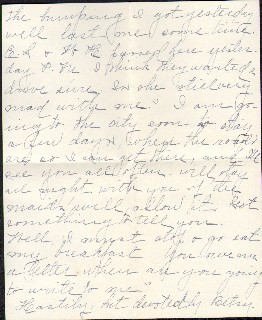 the bumping I got yesterday
will last me some time.
& passed here yester-
day P.M. I think they wanted a
move sure, is she still very
mad with me" I am go-
ing to the city soon to stay
a few days, when the roads
are so I can get there, and I'll
see you all then. Will stay
all night with you if the
madam will allow it. Got
something to tell you.
Well I must stop & go eat
my breakfast You owe me
a letter. when are you going
to write to me"
Hastily, but devotedly Betsy